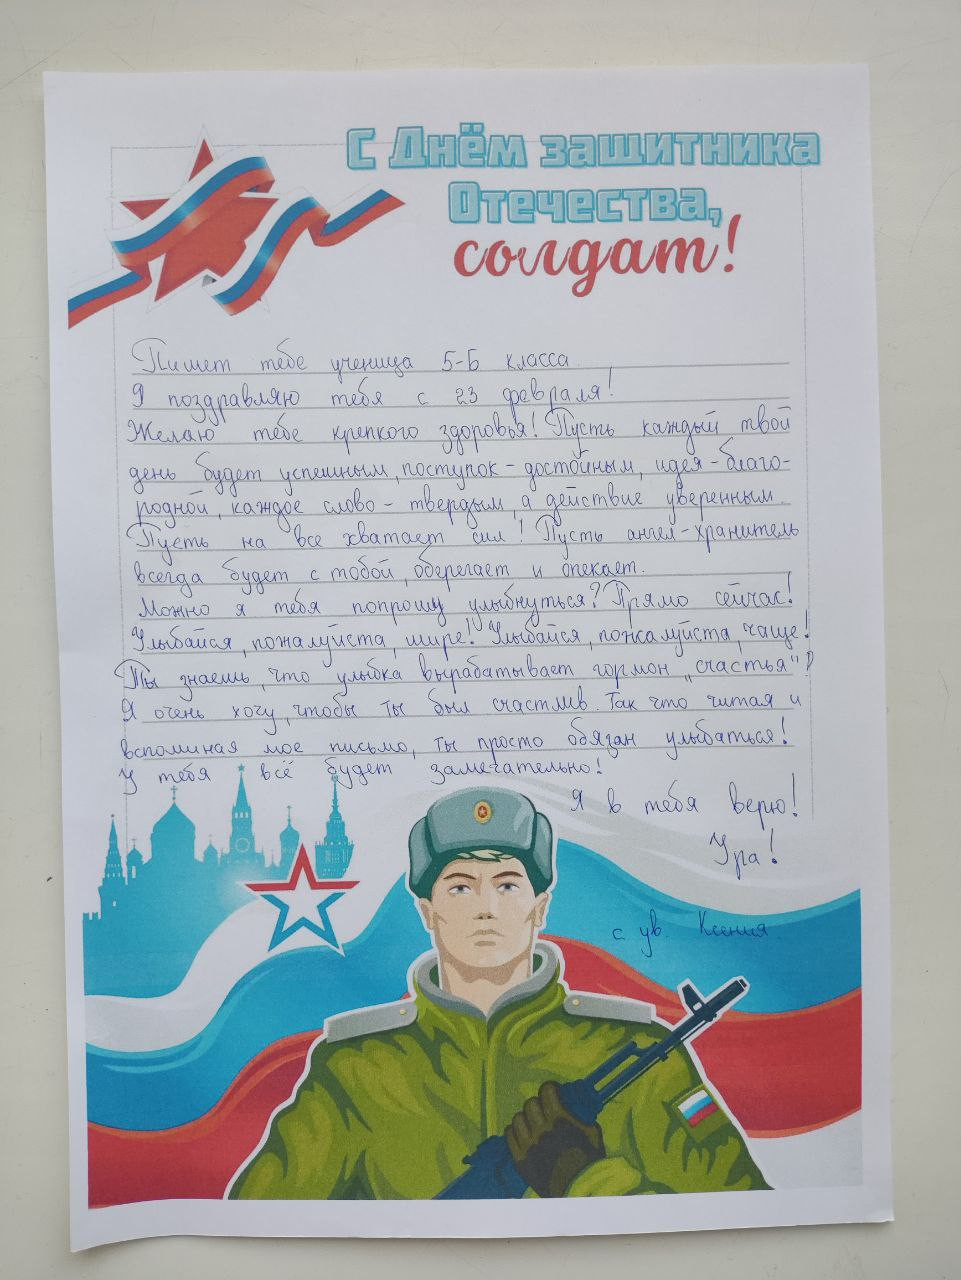 С Днём защитника
Отечества,
солдат!
Пишет тебе ученица 5-Б класса.
Я поздравляю тебя с 23 февраля!
Желаю тебе крепкого здоровья! Пусть каждый твой
день будет успешным, поступок - достойным, идея - благо-
родной, каждое слово - твердым, а действие уверенным.
Пусть на все хватает сил! Пусть ангел-хранитель
всегда будет с тобой, оберегает и опекает.
Можно я тебя попрошу улыбнуться? Прямо сейчас!
Улыбайся, пожалуйста, шире! Улыбайся, пожалуйста, чаще!
Ты знаешь, что улыбка вырабатывает гормон „счастья"?
Я очень хочу, чтобы ты был счастлив. Так что читая и
вспоминая мое письмо, ты просто обязан улыбаться!
У тебя всё будет замечательно!
Я в тебя верю!
Ура!
с ув. Ксения